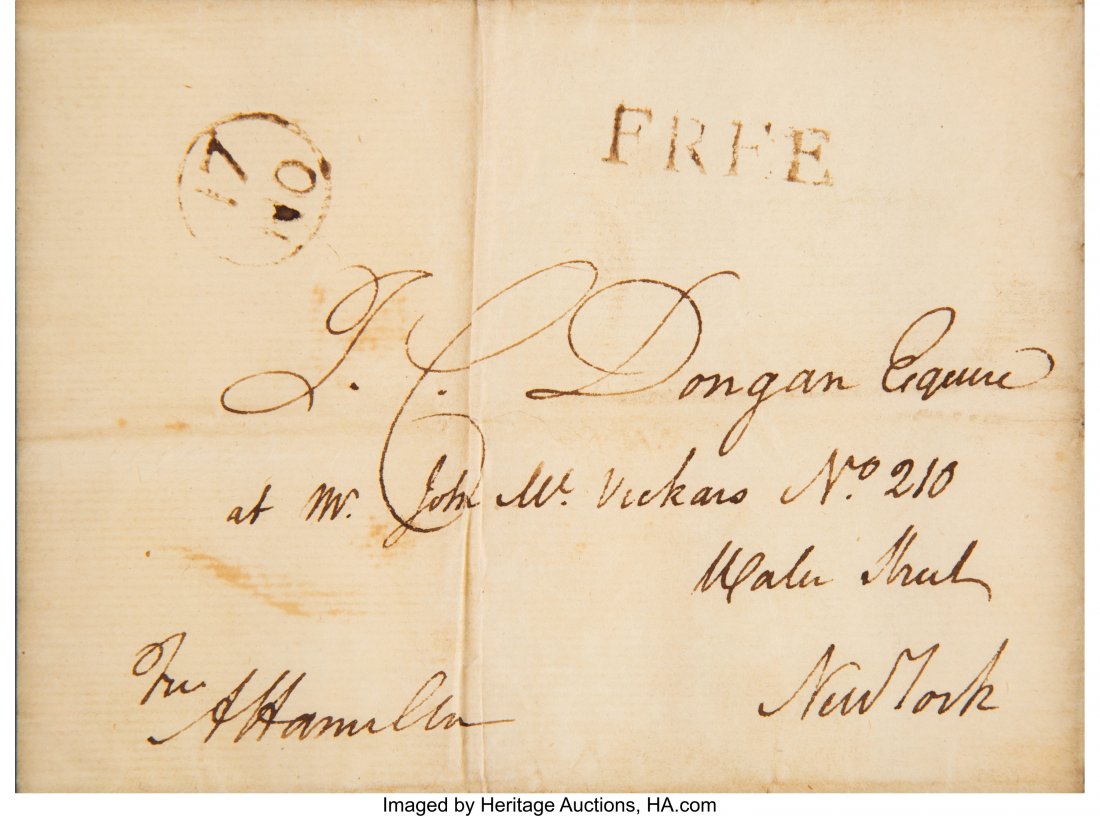 17
NO
FREE
J. C. Dongan Esquire
at Mr. John Mc. Vickars No. 210
Water Street
New York
Free
AHamilton
Imaged by Heritage Auctions, HA.com